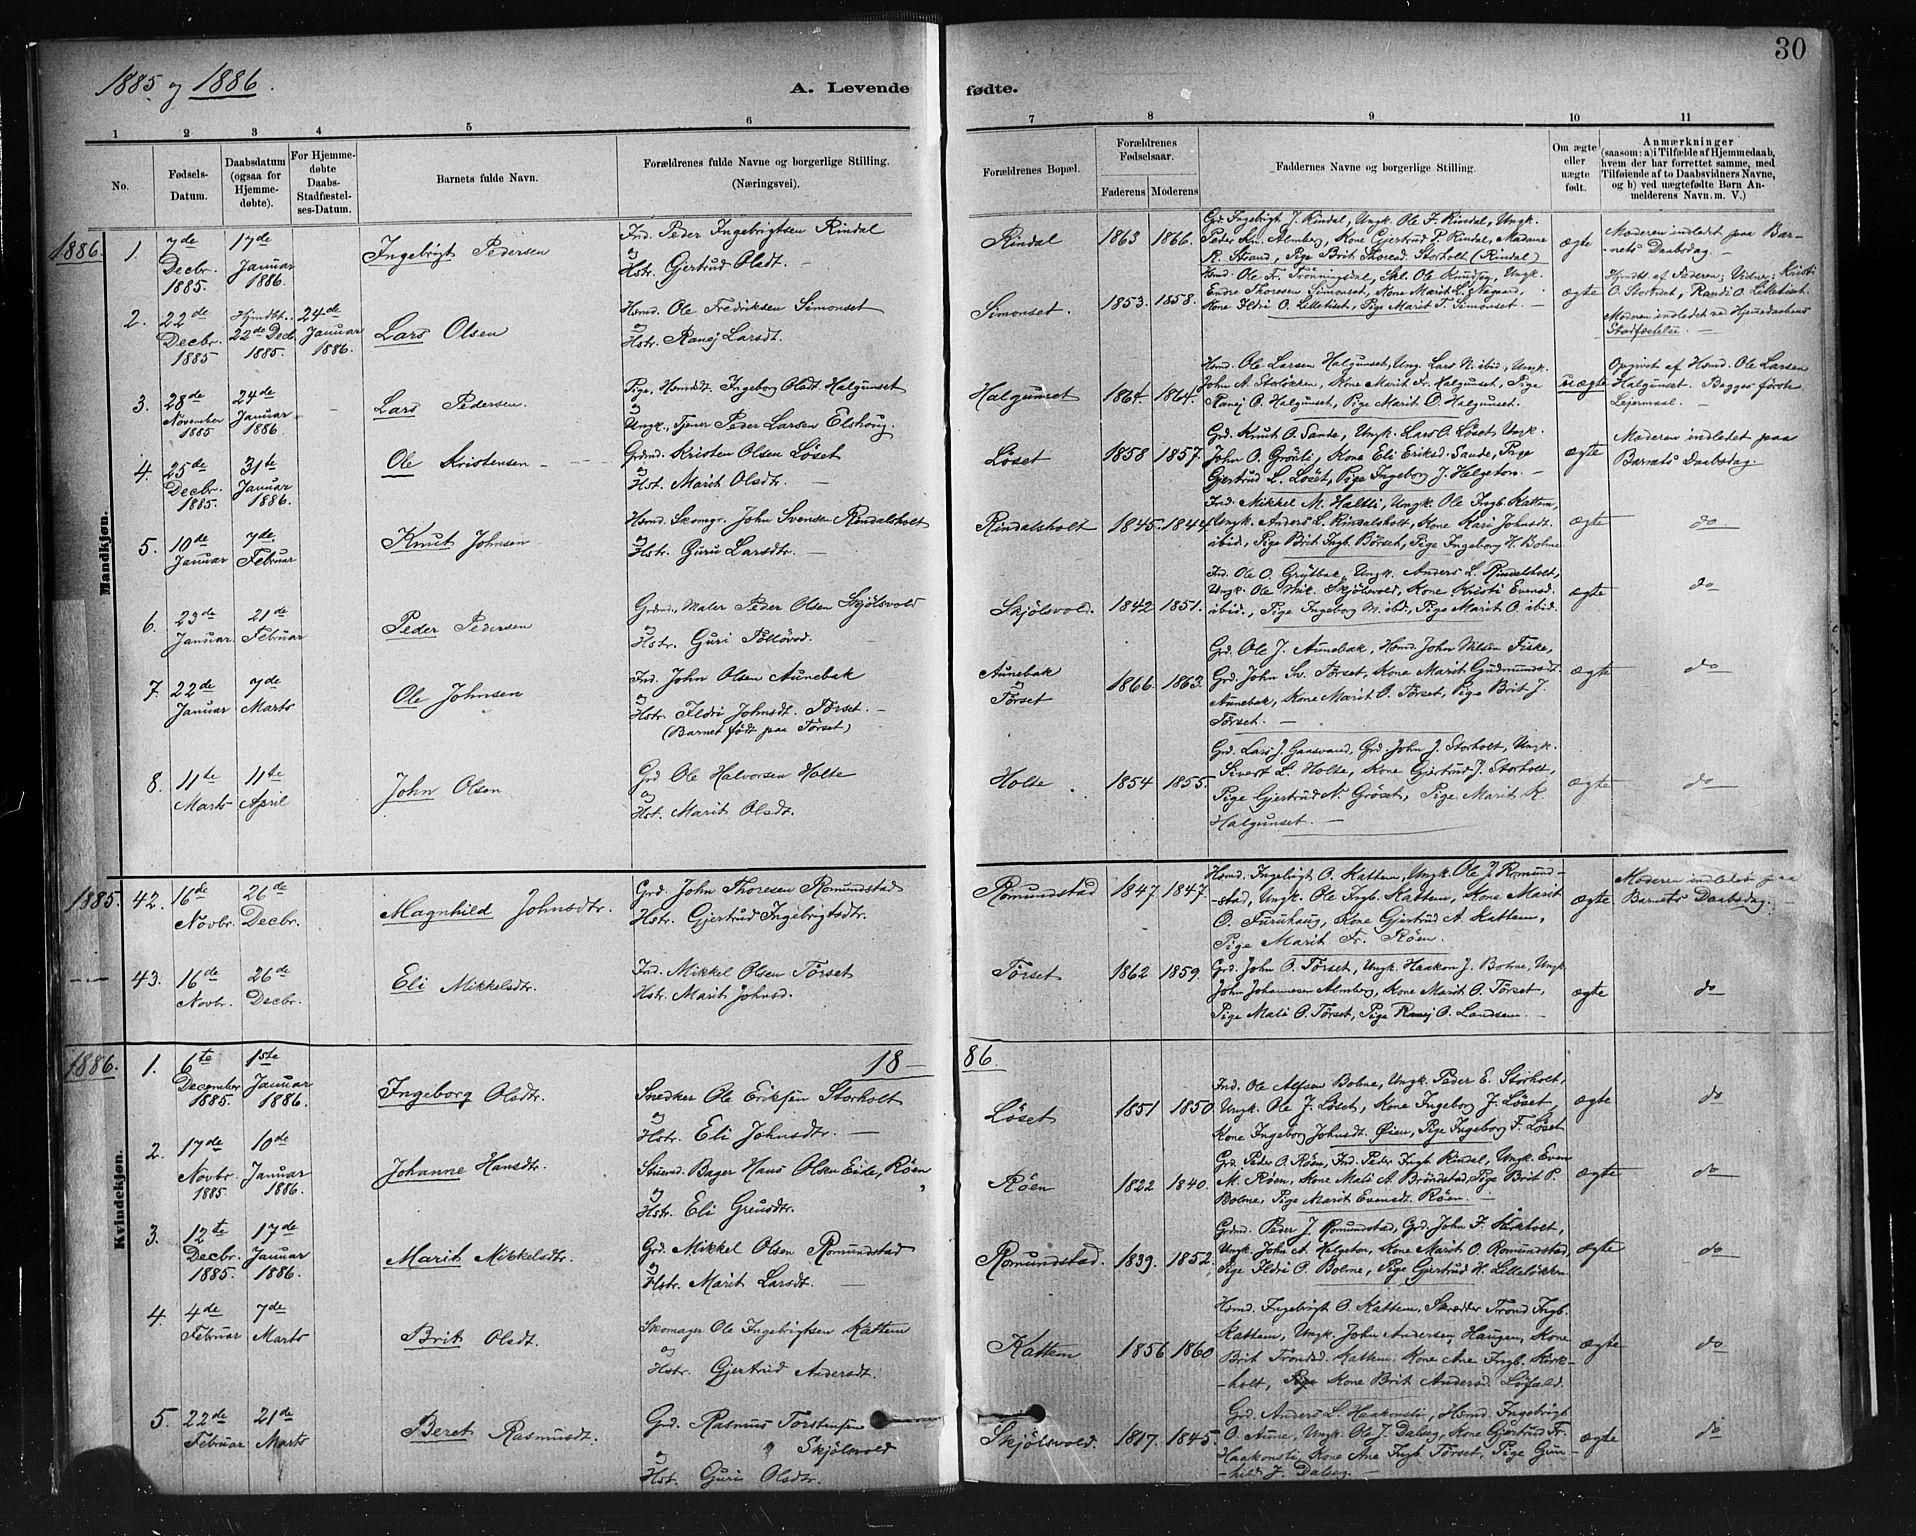 30
1885 og 1886.
A. Levende fødte.
1 2 3 4 5 6 7 8 9 10 11
No.
Fødsels-Datum.
Daabsdatum (ogsaa for Hjemme-døbte).
For Hjemme-døbte Daabs-Stadfæstel-ses-Datum.
Barnets fulde Navn.
Forældrenes fulde Navne og borgerlige Stilling. (Næringsvei).
Forældrenes Bopæl.
Forældrenes Fødselsaar.
Faderens Moderens
Faddernes Navne og borgerlige Stilling.
Om ægte eller uægte født.
Anmærkninger
(saasom: a) i Tilfælde af Hjemmedaab,
hvem der har forrettet samme, med
Tilføiende af to Daabsvidners Navne,
og b) ved uægtefødte Børn An-
melderens Navn. m. V.)
Mandkjøn.
1886. 1. 7de Decbr. 1885. 17de Januar 1886. Ingebrigt Pedersen
Ind. Peder Ingebrigtsen Rindal
og
Hstr. Gjertrud Olsdt. —
Rindal 1863 1866.
Grd. Ingebrigt J. Rindal, Ungk. Ole F. Rindal, Ungk.
Peder Sn. Almberg, Kone Gjertrud P. Rindal, Madame
R. Strand, Pige Brit Thoresd. Storholt (Rindal)
ægte
Moderen indledet paa Bar-
nets Daabsdag. —
2. 22de Decbr. 1885 Hjmdbt. 22de Decb. 1885. 24de Januar 1886. Lars Olsen
Hsmd. Ole Fredriksen Simonset
og
Hstr. Ranej Larsdt.
Simonset. 1853. 1858.
Hsmd. Ole Fr. Trönningsdal, Skl. Ole Knudsen, Ungk.
Endre Thoresen Simonset, Kone Marit L. Nygaard,
Kone Ildri O. Litletiset, Pige Marit T. Simonset. —
ægte
Hjmdbt. af Faderen; Vidner: Kristi
O. Storkiset, Randi O. Litletiset.
Moderen indledet ved Hjemmedaabens
Stadfæstelse. —
3. 28de November 1885 24de Januar 1886. Lars Pedersen.
Pige, Hsmdsdt. Ingeborg Olsdt. Halgunset
og
Ungk., Tjener Peder Larsen Elshoug.
Halgunset 1864. 1864.
Hsmd. Ole Larsen Halgunset, Ung. Lars N. ibid, Ungk.
John A. Storløkken, Kone Marit Fr. Halgunset, Pige
Ranej O. Halgunset, Pige Marit O. Halgunset.
uægte
Opgivet af Hsmd. Ole Larsen
Halgunset. Begges første
Lejermaal. —
4. 25de Decbr. 1885. 31te Januar 1886. Ole Kristensen
Grdmd. Kristen Olsen Löset
og
Hst. Marit Olsdtr. —
Löset 1858 1857.
Grd. Knut O. Sande, Ungk. Lars O. Löset, Ungk.
John O. Grönli, Kone Eli Eriksd. Sande, Pige
Gjertrud L. Löset, Pige Ingeborg J. Helgeton. —
ægte
Moderen indledet paa
Barnets Daabsdag.
5. 10de Januar 7de Februar Knut Johnsen
Hsmd. Skomgr. John Svensen Rindalsholt
og
Hstr. Guru Larsdtr. —
Rindalsholt 1845. 1844.
Ind. Mikkel M. Haltli, Ungk. Ole Ingb. Kattem,
Ungk. Anders L. Rindalsholt, Kone Kari Johnsdt.
ibid., Pige Brit Ingb. Börset, Pige Ingeborg H. Bolme
ægte
do
6. 23de Januar. 21de Februar Peder Pedersen
Grdmd., Maler Peder Olsen Skjölsvold
og
Hstr. Guri Tollövsd. —
Skjölsvold. 1842 1851.
Ind. Ole O. Grytbak, Ungk. Anders L. Rindalsholt,
Ungk. Ole Mik. Skjölsvold, Kone Kristi Evensd.
ibid., Pige Ingeborg N. ibd., Pige Marit O. ibid.
ægte
do
7. 22de Januar 7de Marts Ole Johnsen
Ind. John Olsen Aunebak
og
Hstr. Ildri Johnsdt. Törset. —
(Barnet født paa Törset)
Aunebak
og
Törset 1866. 1863.
Grd. Ole J. Aunebak, Hsmd. John Nilsen Fiske,
Grd. John Sv. Törset, Kone Marit Gudmundsdt.
Aunebak, Kone Marit O. Törset, Pige Brit J.
Törset. —
ægte
do
8. 11te Marts 11te April John Olsen
Grd Ole Halvorsen Holte
og
Hst. Marit Olsdtr.
Holte 1854 1855.
Grd. Lars J. Gaasvand, Grd. John J. Storholt, Ungk.
Sivert L. Holte, Kone Gjertrud J. Storholt,
Pige Gjertrud N. Gröset, Pige Marit K.
Halgunset. —
ægte
do
Kvindekjøn.
1885. 42. 16de Novbr. 26de Decbr. Magnhild Johnsdtr.
Grd. John Thoresen Romundstad
Hstr. Gjertrud Ingebrigtsdtr.
Romundstad 1847. 1847.
Hsmd. Ingebrigt O. Kattem, Ungk. Ole J. Romund-
stad, Ungk. Ole Ingb. Kattem, Kone Marit
O. Furuhaug, Kone Gjertrud A. Kattem,
Pige Marit Fr. Röen.
ægte
Moderen indledet paa
Barnets Daabsdag. —
43. 16de Novbr. 26de Decbr. Eli Mikkelsdtr.
Ind. Mikkel Olsen Törset
Hstr. Marit Johnsd.
Törset 1862 1859.
Grd. John O. Törset, Ungk. Haakon J. Bolme, Ungk.
John Johannesen Almberg, Kone Marit O. Törset,
Pige Mali O. Törset, Pige Ranej O. Landsem. —
ægte
do
18— 86.
1886. 1. 6te December 1885. 1ste Januar 1886. Ingeborg Olsdtr.
Snedker Ole Eriksen Storholt
og
Hstr. Eli Johnsdtr. —
Löset 1851 1850.
Ind. Ole Alfsen Bolme, Ungk. Peder E. Storholt,
Ungk. Ole J. Löset, Kone Ingeborg J. Löset,
Kone Ingeborg Johnsdt. Øien, Pige Ingeborg F. Löset
ægte
do
2. 17de Novbr. 1885 10de Januar 1886. Johanne Hansdtr.
Bager Hans Olsen Eide, Röen
og
Hstr. Eli Greusdtr.
Röen 1822 1840.
Grd. Peder O. Röen, Ind. Peder Ingb. Rindal, Ungk. Even
M. Röen, Kone Mali A. Bröndstad, Pige Brit P.
Bolme, Pige Marit Evensdt. Röen. —
ægte
do
3. 12te Decbr. 1885. 17de Januar 1886. Marit Mikkelsdtr.
Grd. Mikkel Olsen Romundstad
og
Hstr. Marit Larsdt. —
Romundstad. 1839. 1852.
Grdmd. Peder J. Romundstad, Grd. John F. Kirkholt,
Ungk. John A. Helgeton, Kone Marit O. Romundstad,
Pige Ildri O. Bolme, Pige Gjertrud H. Lilleløkken
ægte
do
4. 4de Februar 7de Marts Brit Olsdt.
Skomager Ole Ingebrigtsen Kattem
og
Hstr. Gjertrud Andersdt.
Kattem 1856 1860
Hsmd. Ingebrigt O. Kattem, Skrædder Trond Ingb.
Kattem, Ungk. John Andersen Haugen, Kone
Brit Trondsd. Kattem, Kone Ane Ingb. Kirk-
holt, Kone Brit Andersd. Löfald.
ægte
do
5. 22de Februar 21de Marts Beret Rasmusdt.
Grd. Rasmus Torstensen
Skjölsvold
og
Hst. Guri Olsdtr.
Skjölsvold. 1817. 1845.
Grd. Anders L. Haakonsli, Hsmd. Ingebrigt
O. Aune, Ungk. Ole J. Dalseg, Kone Gjertrud Fr.
Haakonsli, Kone Ane Ingb. Törset, Pige Gun-
hild J. Dalseg. —
ægte
do